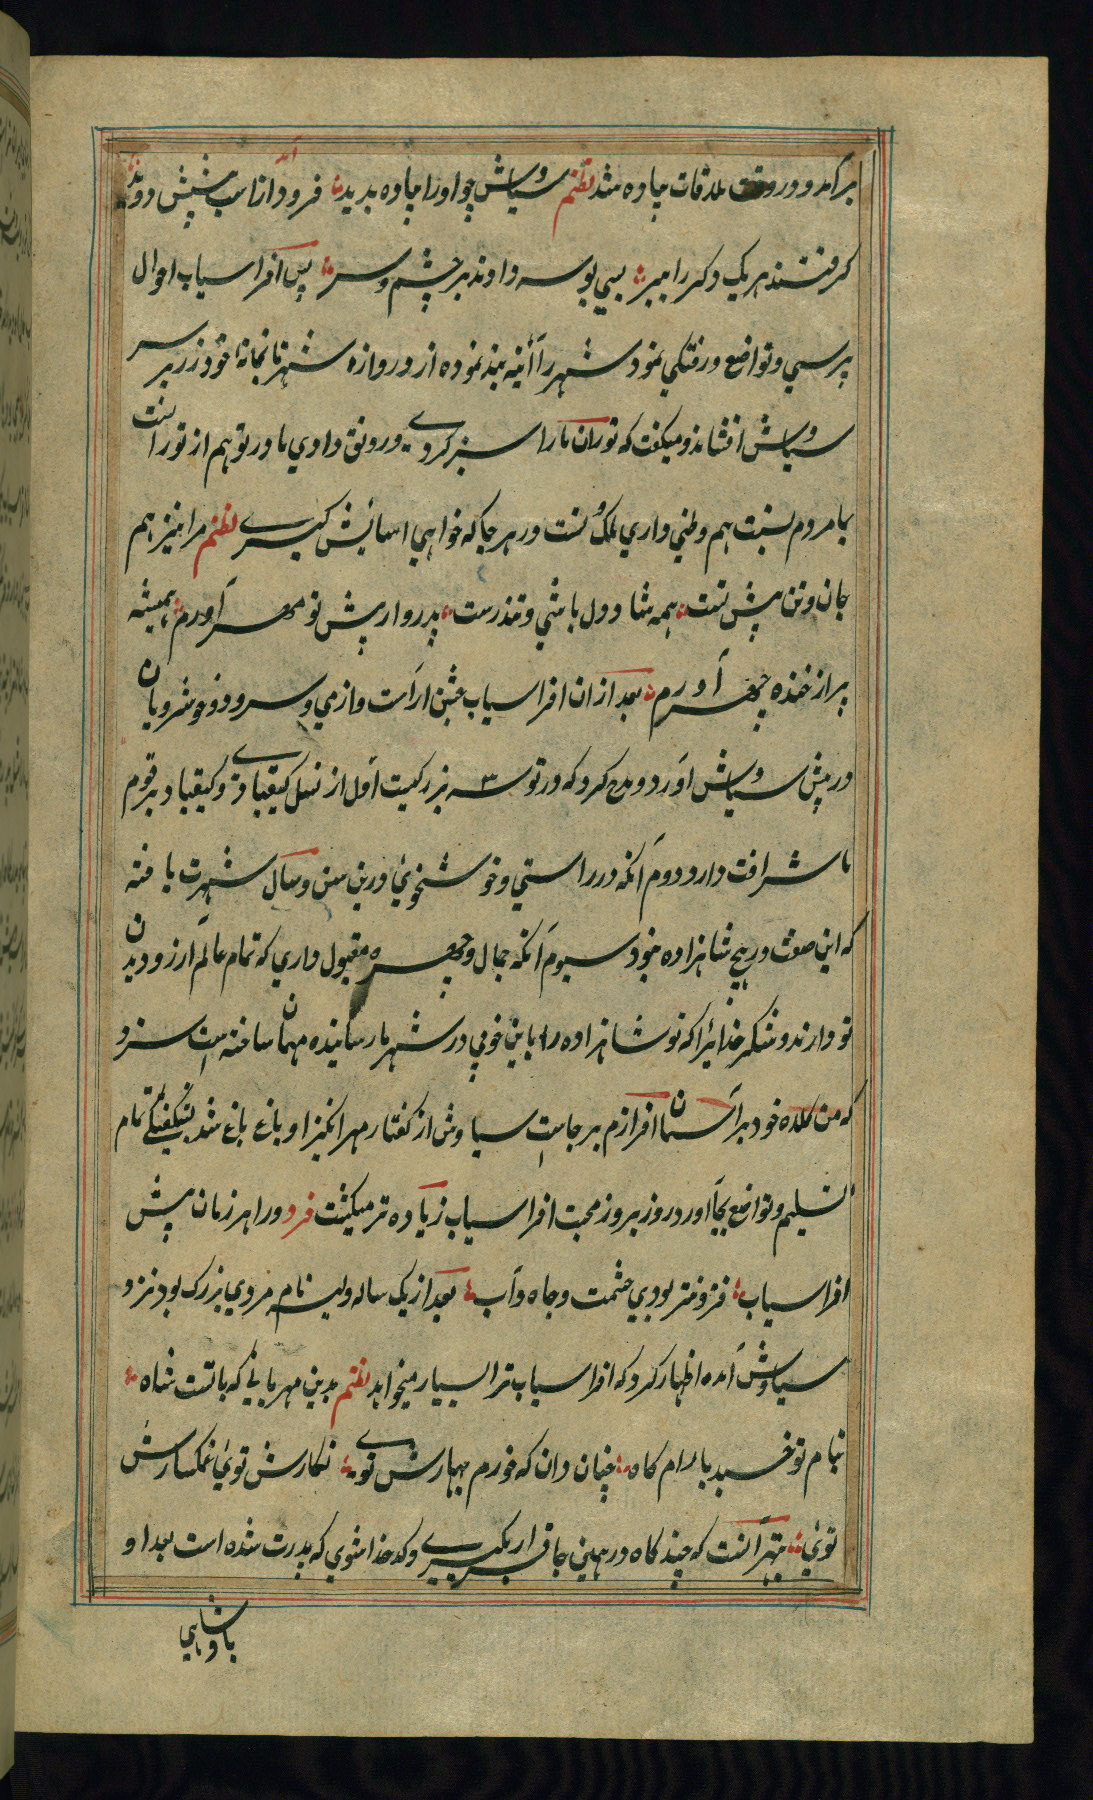 برآمد و در وقت ملاقات پیاده شد نظم سیاوش چو او را پیاده بدید فرود آمد از اسب پیشش دوید
گرفتند هر یک دگر را ببر بسی بوسه دادند بر چشم و سر پس افراسیاب احوال
پرسی و تواضع و رفتگی نمود شهر را آئینه بند نموده از دروازه شهر تا بخانه خود زر بر سر
سیاوش افشاند و میگفت که توران ما را سبز کردی و رونق دادی مادر تو هم از توران است
بما مردم نسبت هم وطنی داری ملک تست در هر جا که خواهی اسائش گیری نظم مرا نیز هم
جان و تن پیش تست همه شاد دل باشی و تندرست پدروار پیش تو مهر آورم همیشه
پر از خنده چهر آورم بعد ازان افراسیاب جشن اراست و از می و سرود و خوشرویان
در پیش سیاوش آورد و مدح کرد که در تو سه بزرگیست اول از نسل کیقبادی و کیقباد بر قوم
ما شرافت دارد دوم آنکه در راستی و خوشخوئی درین سن و سال شهرت یافته
که این صفت در هیچ شاهزاده نبود سیوم آنکه جمال و چهره مقبول داری که تمام عالم آرزو دیدن
تو دارند و شکر خدائیرا که تو شاهزاده را باین خوبی در شهر ما رسانیده مهمان ساخته است سزد
که من کلاه خود بر آسمان افرازم بر جاست سیاوش از گفتار مهر انگیز او باغ باغ شد بشگفتگی تمام
تسلیم و تواضع بجا آورد روز بروز محبت افراسیاب زیاده تر میگشت فرد ورا هر زمان پیش
افراسیاب فزونتر بودی حشمت و جاه و آب بعد از یک ساله ویسه نام مردی بزرگ بود نزد
سیاوش آمده اظهار کرد که افراسیاب ترا بسیار میخواهد نظم بدین مهربانی که با تست شاه
بنام تو خسبد بارام گاه چنان دان که خورم بهارش توی نگارش توئی غمگسارش
توئی بهتر آنست که چند گاه در همین جا قرار بگیری و کدخدا شوی که پدرت شده است بعد او
بادشاهی